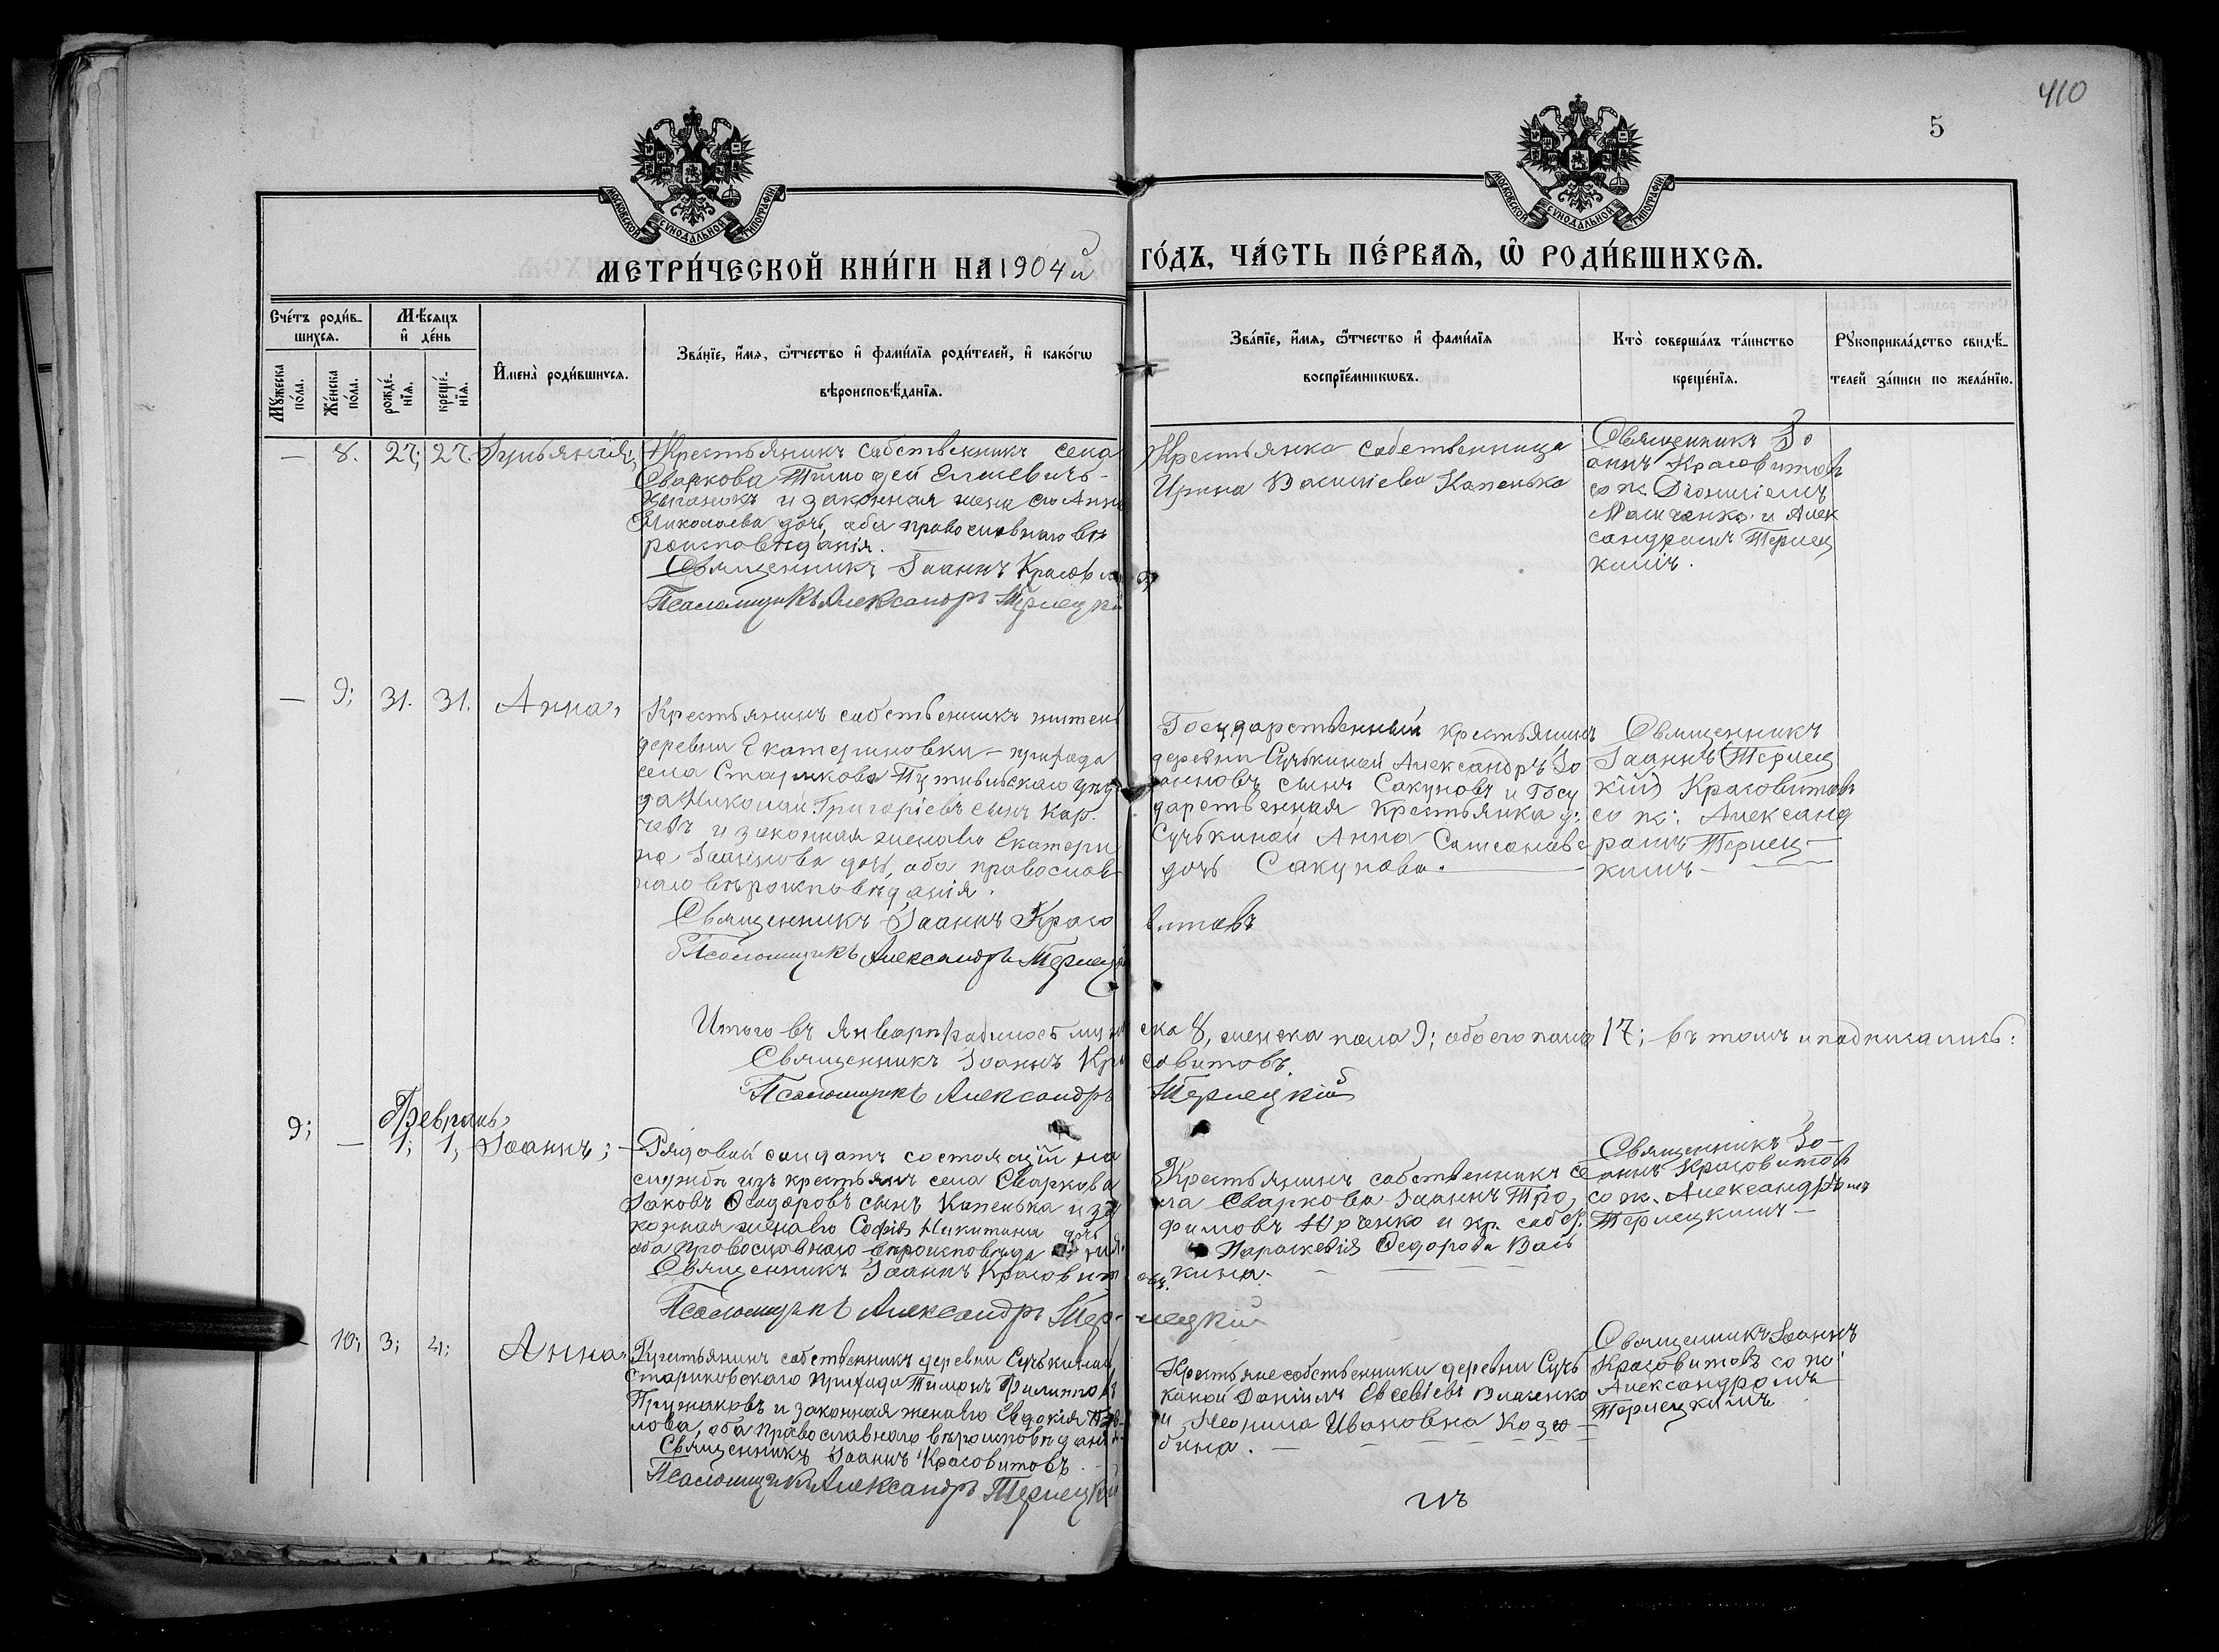 410
5
МОСКОВСКОЙ СѴНОДАЛЬНОЙ ТИПОГРАФІИ
МОСКОВСКОЙ СѴНОДАЛЬНОЙ ТИПОГРАФІИ
МЕТРИ́ЧЕСКОЙ КНИ́ГИ НА 1904й ГО́ДЪ, ЧА́СТЬ ПЕ́РВАѦ, Ѡ РОДИ́ВШИХСѦ.
Сче́тъ роди́в-
шихсѧ.
Мꙋ́жеска по́ла.
Же́нска по́ла.
Мѣ́сѧцъ
и҆ де́нь
рожде́-
нїѧ.
креще́-
нїѧ.
И҆мена̀ роди́вшихсѧ.
Зва́нїе, и҆́мѧ, ѻ҆́тчество и҆ фами́лїѧ роди́телей, и҆ како́гѡ
вѣроисповѣ́данїѧ.
Зва́нїе, и҆́мѧ, ѻ҆́тчество и҆ фами́лїѧ
воспрїе́мникѡвъ.
Кто̀ соверша́лъ та́инство
креще́нїѧ.
Рꙋкоприкла́дство свидѣ́-
телей за́писи по жела́нїю.
— 8. 27; 27.
Крестьянинъ собственникъ села
Сваркова Тимофей
и законная жена его Анна
Николаева дочь, оба православнаго вѣ
роисповѣданія.
Священникъ Іоаннъ Красовитовъ
Псаломщикъ Александръ Терлецкій
Крестьянка собственница
Ирина Василіева Капенька
Священникъ Іо
аннъ Красовитовъ
со п. Діонисіемъ
и Алек
сандромъ Терлец
кимъ.
— 9; 31. 31. Анна,
Крестьянинъ собственникъ жител
деревни Екатериновки — прихода
села Старикова Путивльскаго уѣз
да Николай Григоріевъ сынъ Кар.
чевъ и законная жена его Екатери
на Іоаннова дочь, оба православ
наго вѣроисповѣданія.
Священникъ Іоаннъ Красовитовъ
Псаломщикъ Александръ Терлецкій
Государственный крестьянинъ
деревни Сучькиной Александръ Іо
анновъ сынъ Сакуновъ и Госу
дарственная крестьянка д.
Сучькиной Анна Самсонова
дочь Сакунова.
Священникъ
Іоаннъ (Терлец
кій) Красовитовъ
со п: Александ
ромъ Терлец—
кимъ—
Итого въ Январѣ родилось мужеска 8, женска пола 9; обоего пола 17; въ томъ и подписались:
Священникъ Іоаннъ Красовитовъ.
Псаломщикъ Александръ Терлецкій
Февраль,
9; — 1; 1, Іоаннъ;
Рядовой солдатъ состоящій на
службѣ изъ крестьянъ села Сваркова
Іаковъ Ѳеодоровъ сынъ Капенька и за
конная жена его Софія Никитина дочь
оба православнаго вѣроисповѣданія.
Священникъ Іоаннъ Красовитовъ.
Псаломщикъ Александръ Терлецкій
Крестьянинъ собственникъ се
ла Сваркова Іоаннъ Тро
фимовъ Юрченко и кр. собст.
Параскевія Ѳедорова Вась
кина.
Священникъ Іо—
аннъ Красовитовъ
со п. Александромъ
Терлецкимъ—
— 10; 3; 4; Анна,
Крестьянинъ собственникъ деревни Сучькиной
Стариковскаго прихода Тимонъ Филиппов
Пружаковъ и законная жена его Евдокія Пав
лова, оба православнаго вѣроисповѣданія.
Священникъ Іоаннъ Красовитовъ.
Псаломщикъ Александръ Терлецкій
Крестьяне собственники деревни Сучь
киной Даніилъ Евсевіевъ Власенко
и Неонила Ивановна Козю—
бина.
Священникъ Іоаннъ
Красовитовъ со п.
Александромъ
Терлецкимъ